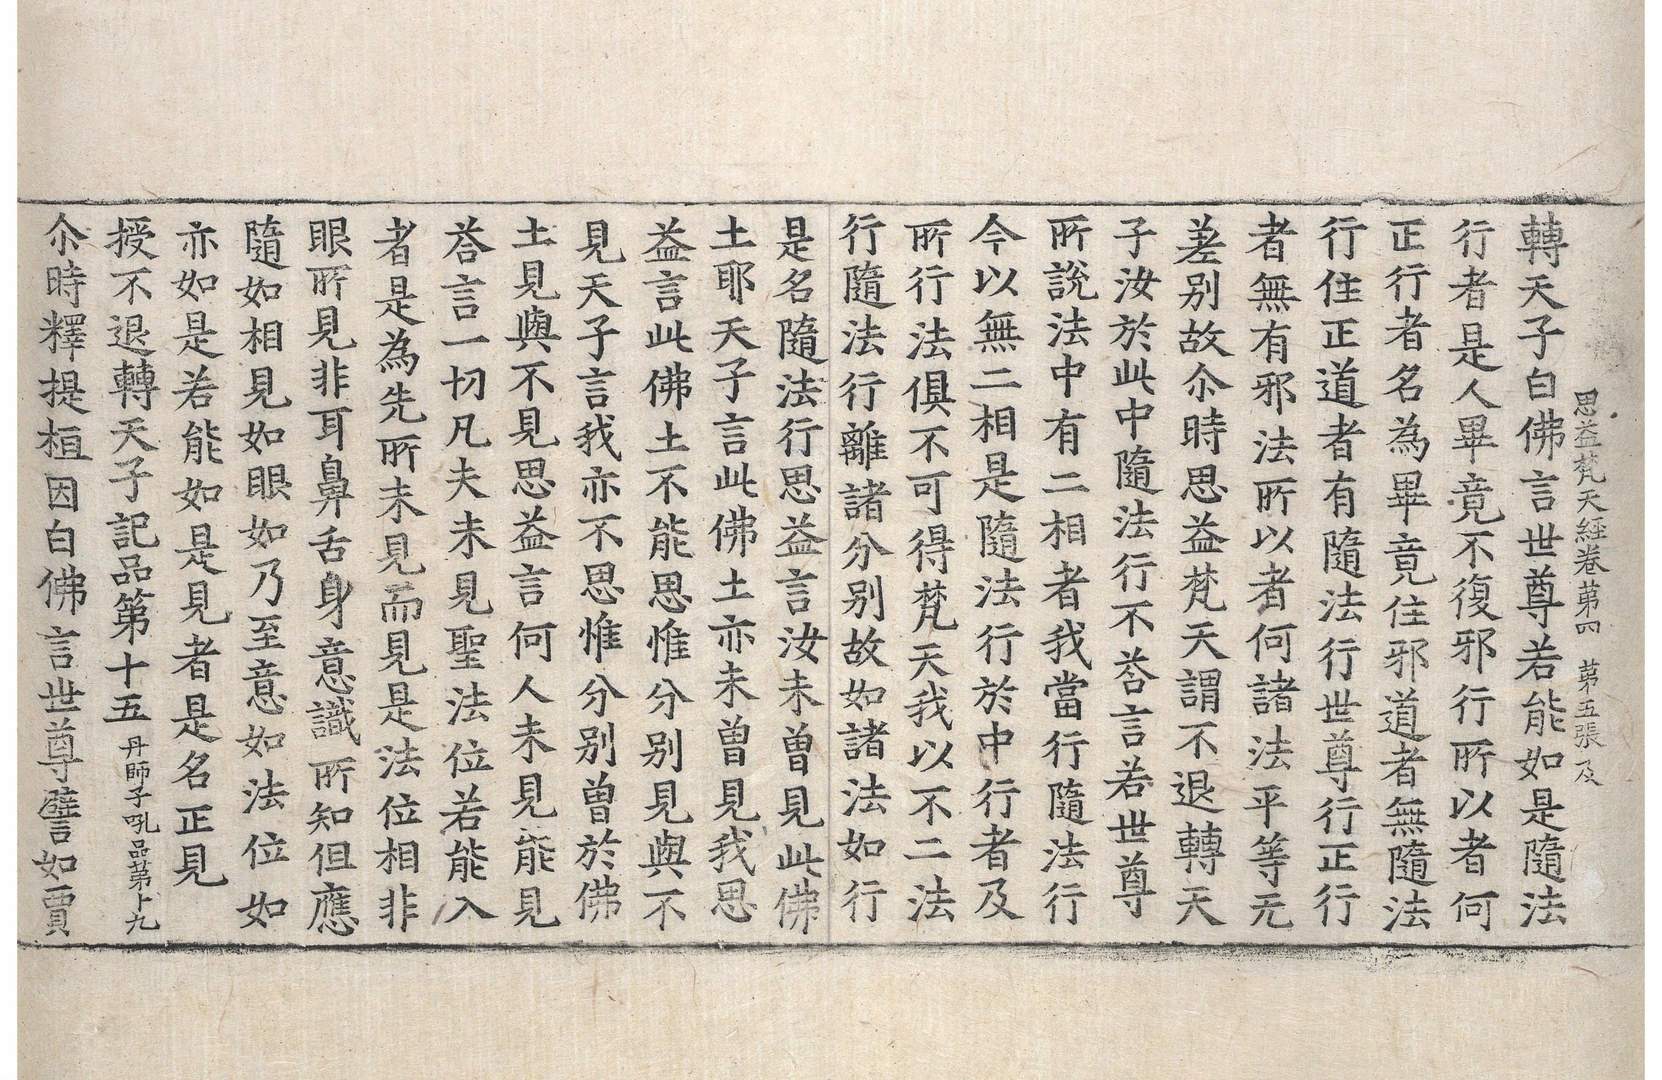 思益梵天經卷第四 第五張 及
轉天子白佛言世尊若能如是隨法
行者是人畢竟不復邪行所以者何
正行者名為畢竟住邪道者無隨法
行住正道者有隨法行世尊行正行
者無有邪法所以者何諸法平等无
差别故尒時思益梵天謂不退轉天
子汝於此中隨法行不荅言若世尊
所說法中有二相者我當行隨法行
今以無二相是隨法行於中行者及
所行法俱不可得梵天我以不二法
行隨法行離諸分别故如諸法如行
是名隨法行思益言汝未曾見此佛
土耶天子言此佛土亦未曾見我思
益言此佛土不能思惟分别見與不
見天子言我亦不思惟分别曾於佛
土見與不見思益言何人未見能見
荅言一切凡夫未見聖法位若能入
者是為先所未見而見是法位相非
眼所見非耳鼻舌身意識所知但應
隨如相見如眼如乃至意如法位如
亦如是若能如是見者是名正見
授不退轉天子記品第十五 丹師子吼品第十九
尒時釋提桓因白佛言世尊譬如賈